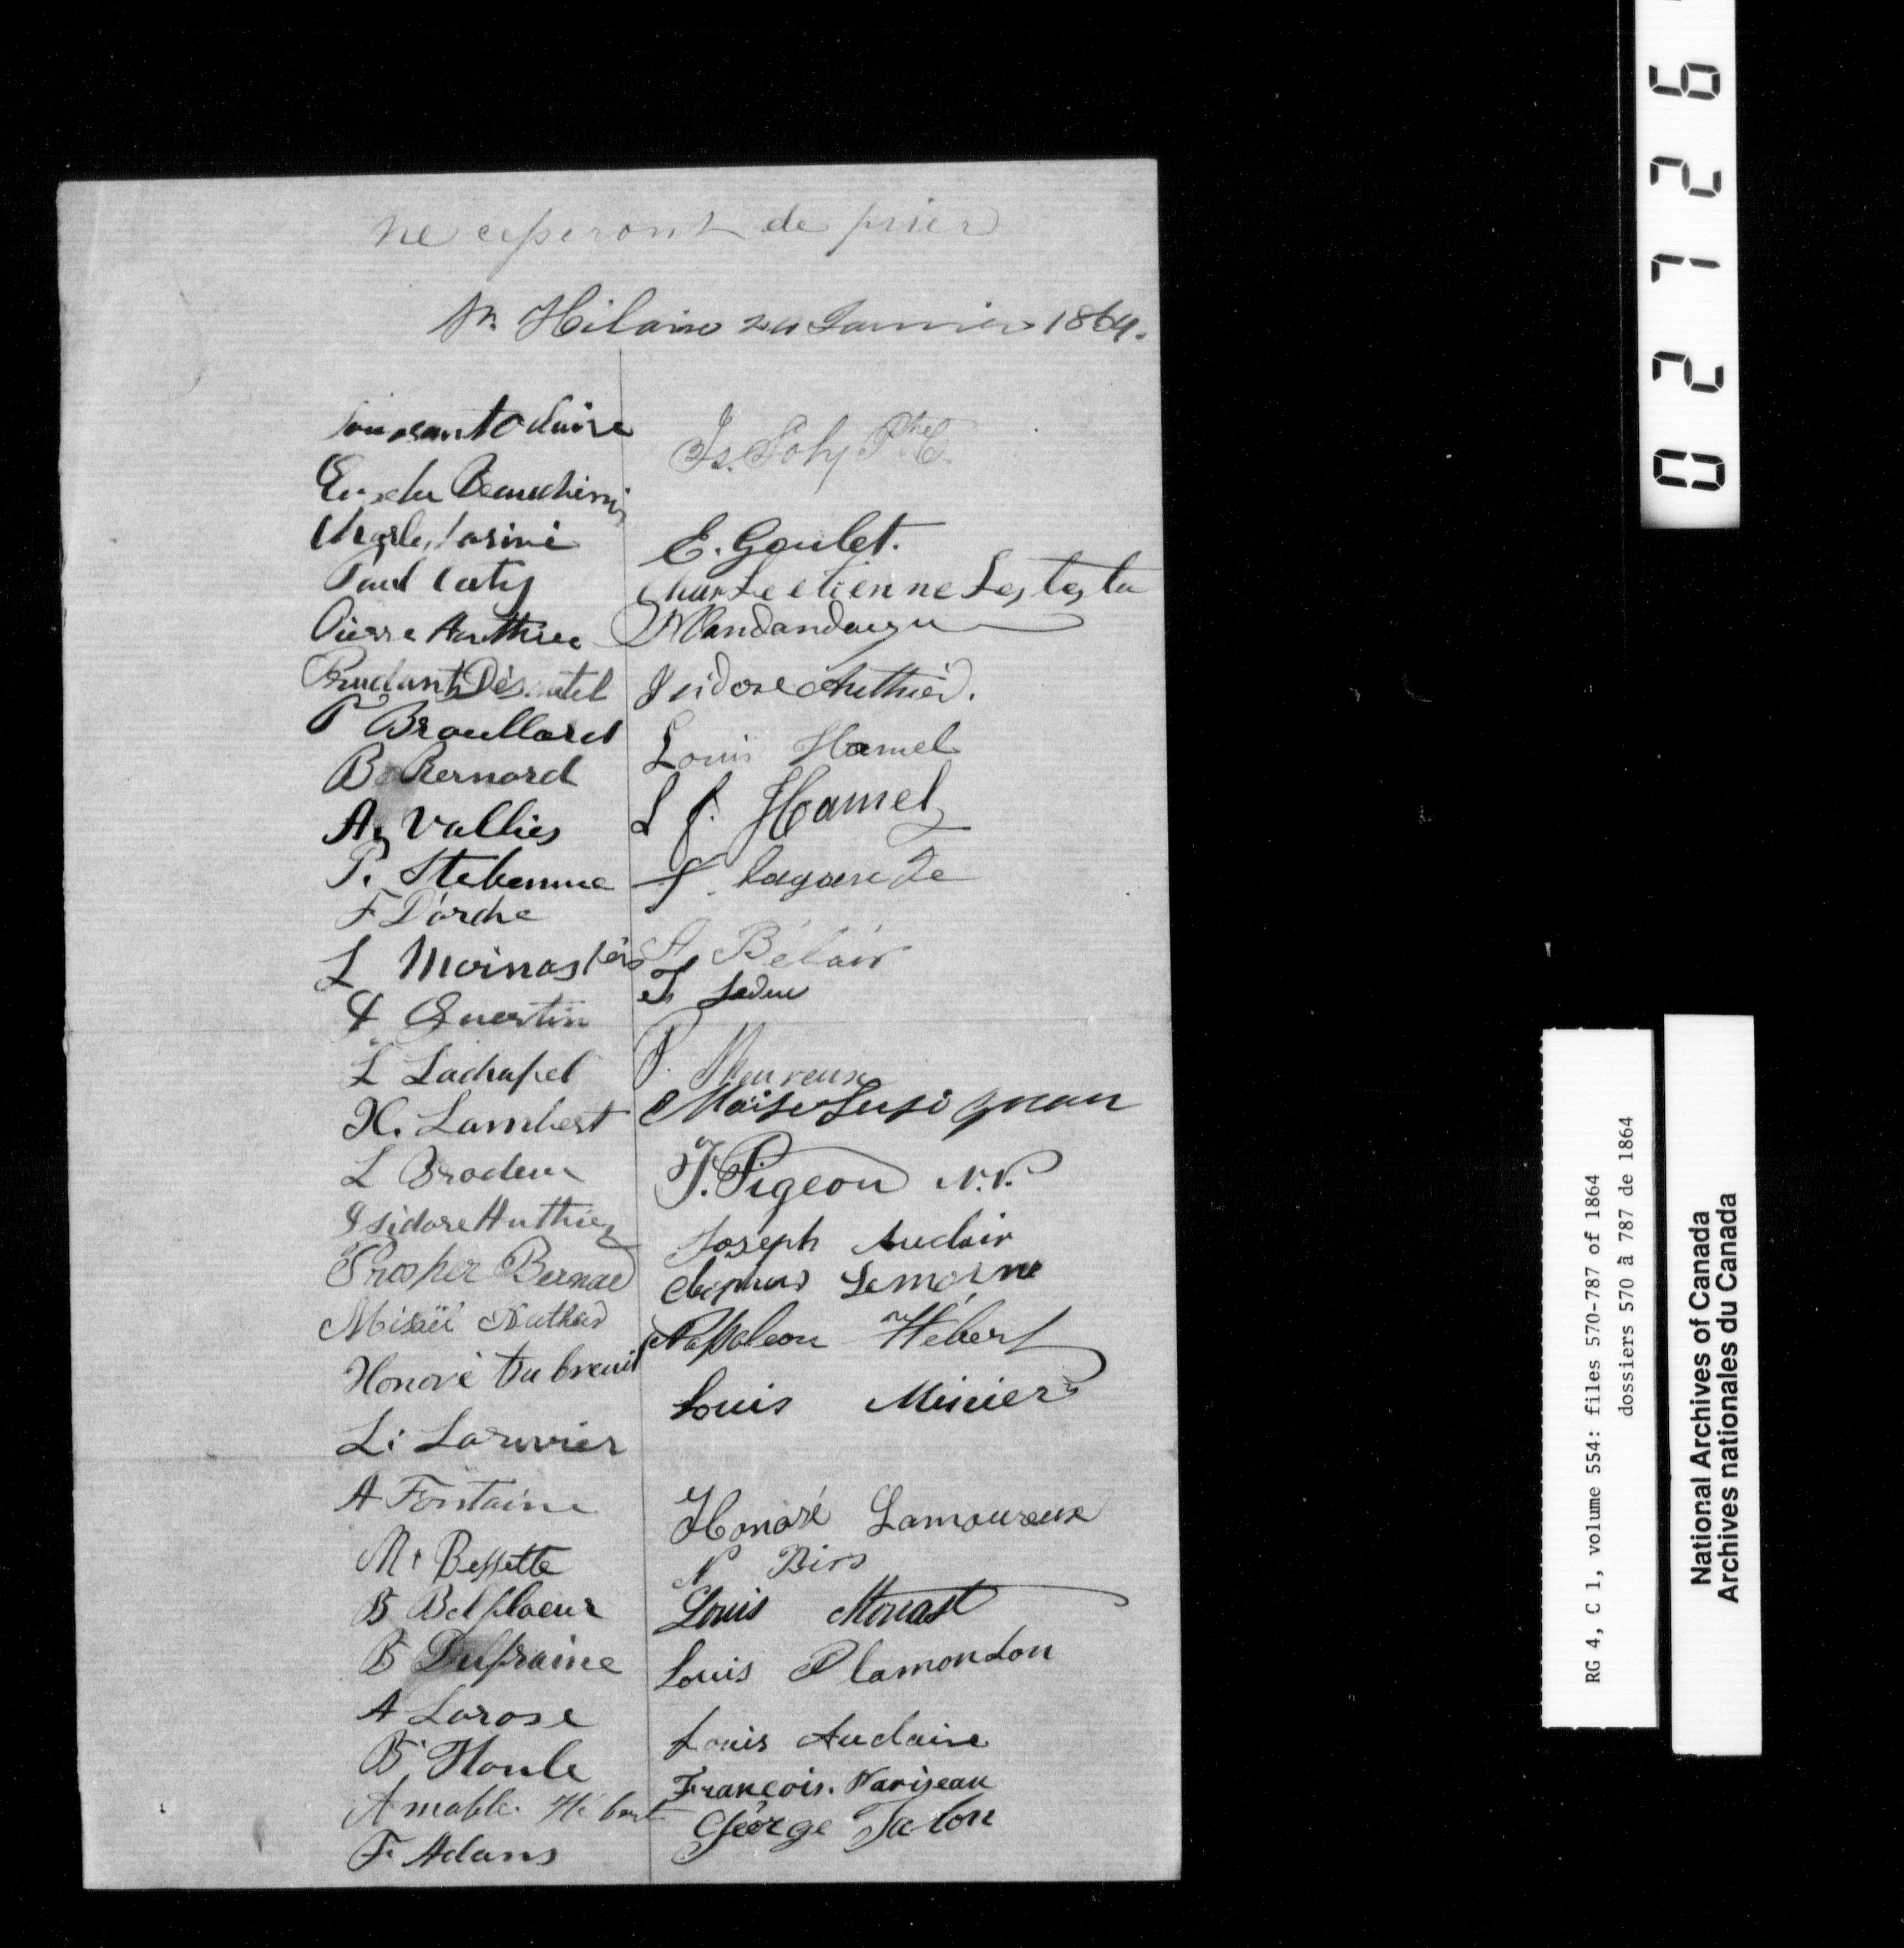 ne cesseront de prier
St. Hilaire 24 Janvier 1864.
Toussant Odaire
Beauchemin
Charle
Paul
Pierre Authier
Prudant Désautel
P Broullard
B Bernard
A, Vallier
P. Stebenne
F D'arche
L Moinas
Guertin
L Lachapel
X. Lambert
L Brodeur
Isidore Authier
Prosper Bernard
Misaël Authier
Honoré Dubreuil
L: Larivier
A Fontaine
M. Bessette
B Belfleur
B Dufraine
A Larose
B. Houle
Amable Hébert
F. Adans
Js. Soly Ptre C.
E. Goulet.
Charle etienne Letesta
Isidore Authier.
Louis Hamel
L J. Hamel
f. lagarede
Bélair
Leduc
P. Heureux
Moïse Lusignan
J. Pigeon N.P.
Joseph Auclair
Lemoine
Napoleon Hébert
Louis Minier
Honoré Lamoureux
N Birs
Louis Monast
Louis Plamondon
Louis Auclaire
François. Pariseau
George Talon
02726
RG 4, C 1, volume 554: files 570-787 of 1864
dossiers 570 à 787 de 1864
National Archives of Canada
Archives nationales du Canada